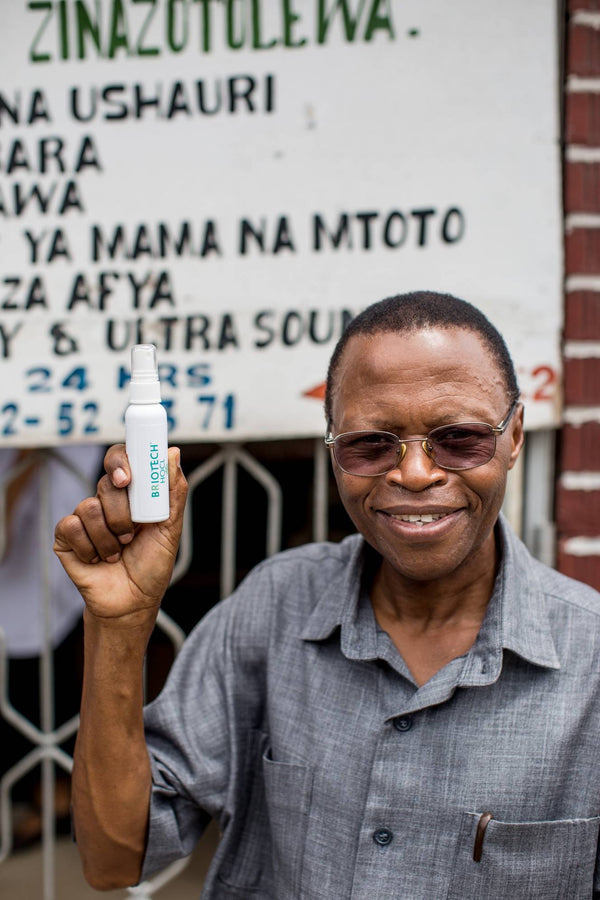 ZINAZOTOLEWA.
NA USHAURI
BARA
AWA
YA MAMA NA MTOTO
ZA AFYA
Y & ULTRA SOUN
24 HRS
2- 52 71
2
BRIOTECH
HOCL